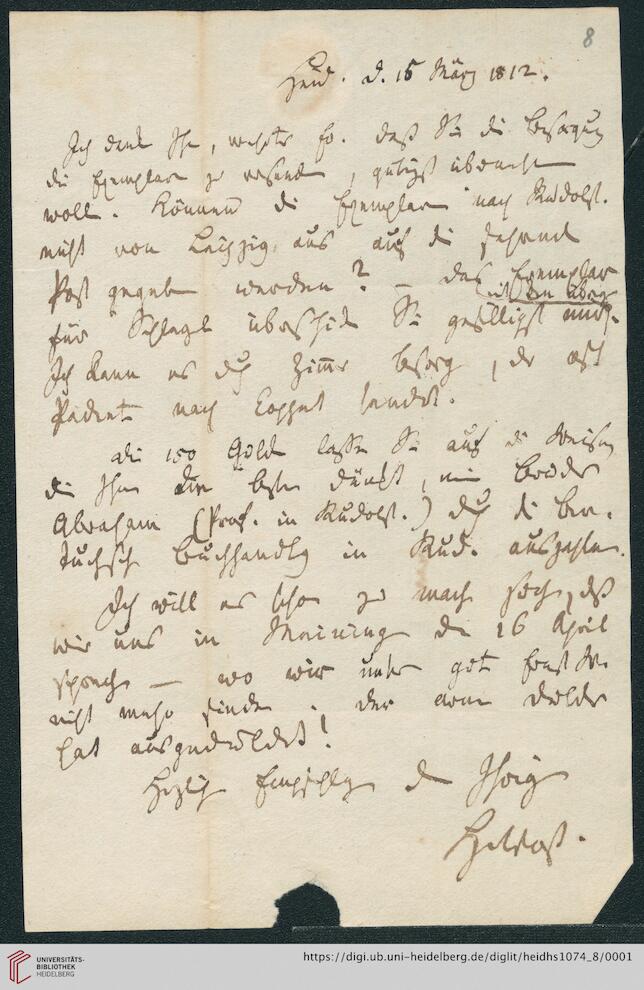 8
Heid. d. 15 März 1812.
Ich dank Ihn, daß Sie die Besorgung
die Exemplare zu versenden, gütigst übernehmen
wollen. Können die Exemplare nach Rudolst.
nicht von Leipzig aus auf die fahrende
Post gegeben werden? — das Exemplar
mit den übrigen
für Schlegel überschicken Sie gefälligst
Ich kann es durch Zimmer besorgen, der oft
Packete nach Coppet sendet.
die 150 Gold lassen Sie auf die Weise,
die Ihnen die beste dünkt, mein Bruder
Abraham (Prof. in Rudolst.) durch die
Buchhandlg in Rud. auszahlen.
Ich will es schon zu machen suchen, daß
wir uns in Meining den 16 April
sprechen — wo wir unsern guten Ernst W.
nicht mehr finden. der arme Dulder
hat ausgeduldet!
Herzliche Empfehlg den Ihrig
HVoß.
UNIVERSITÄTS-
BIBLIOTHEK
HEIDELBERG
https://digi.ub.uni-heidelberg.de/diglit/heidhs1074_8/0001